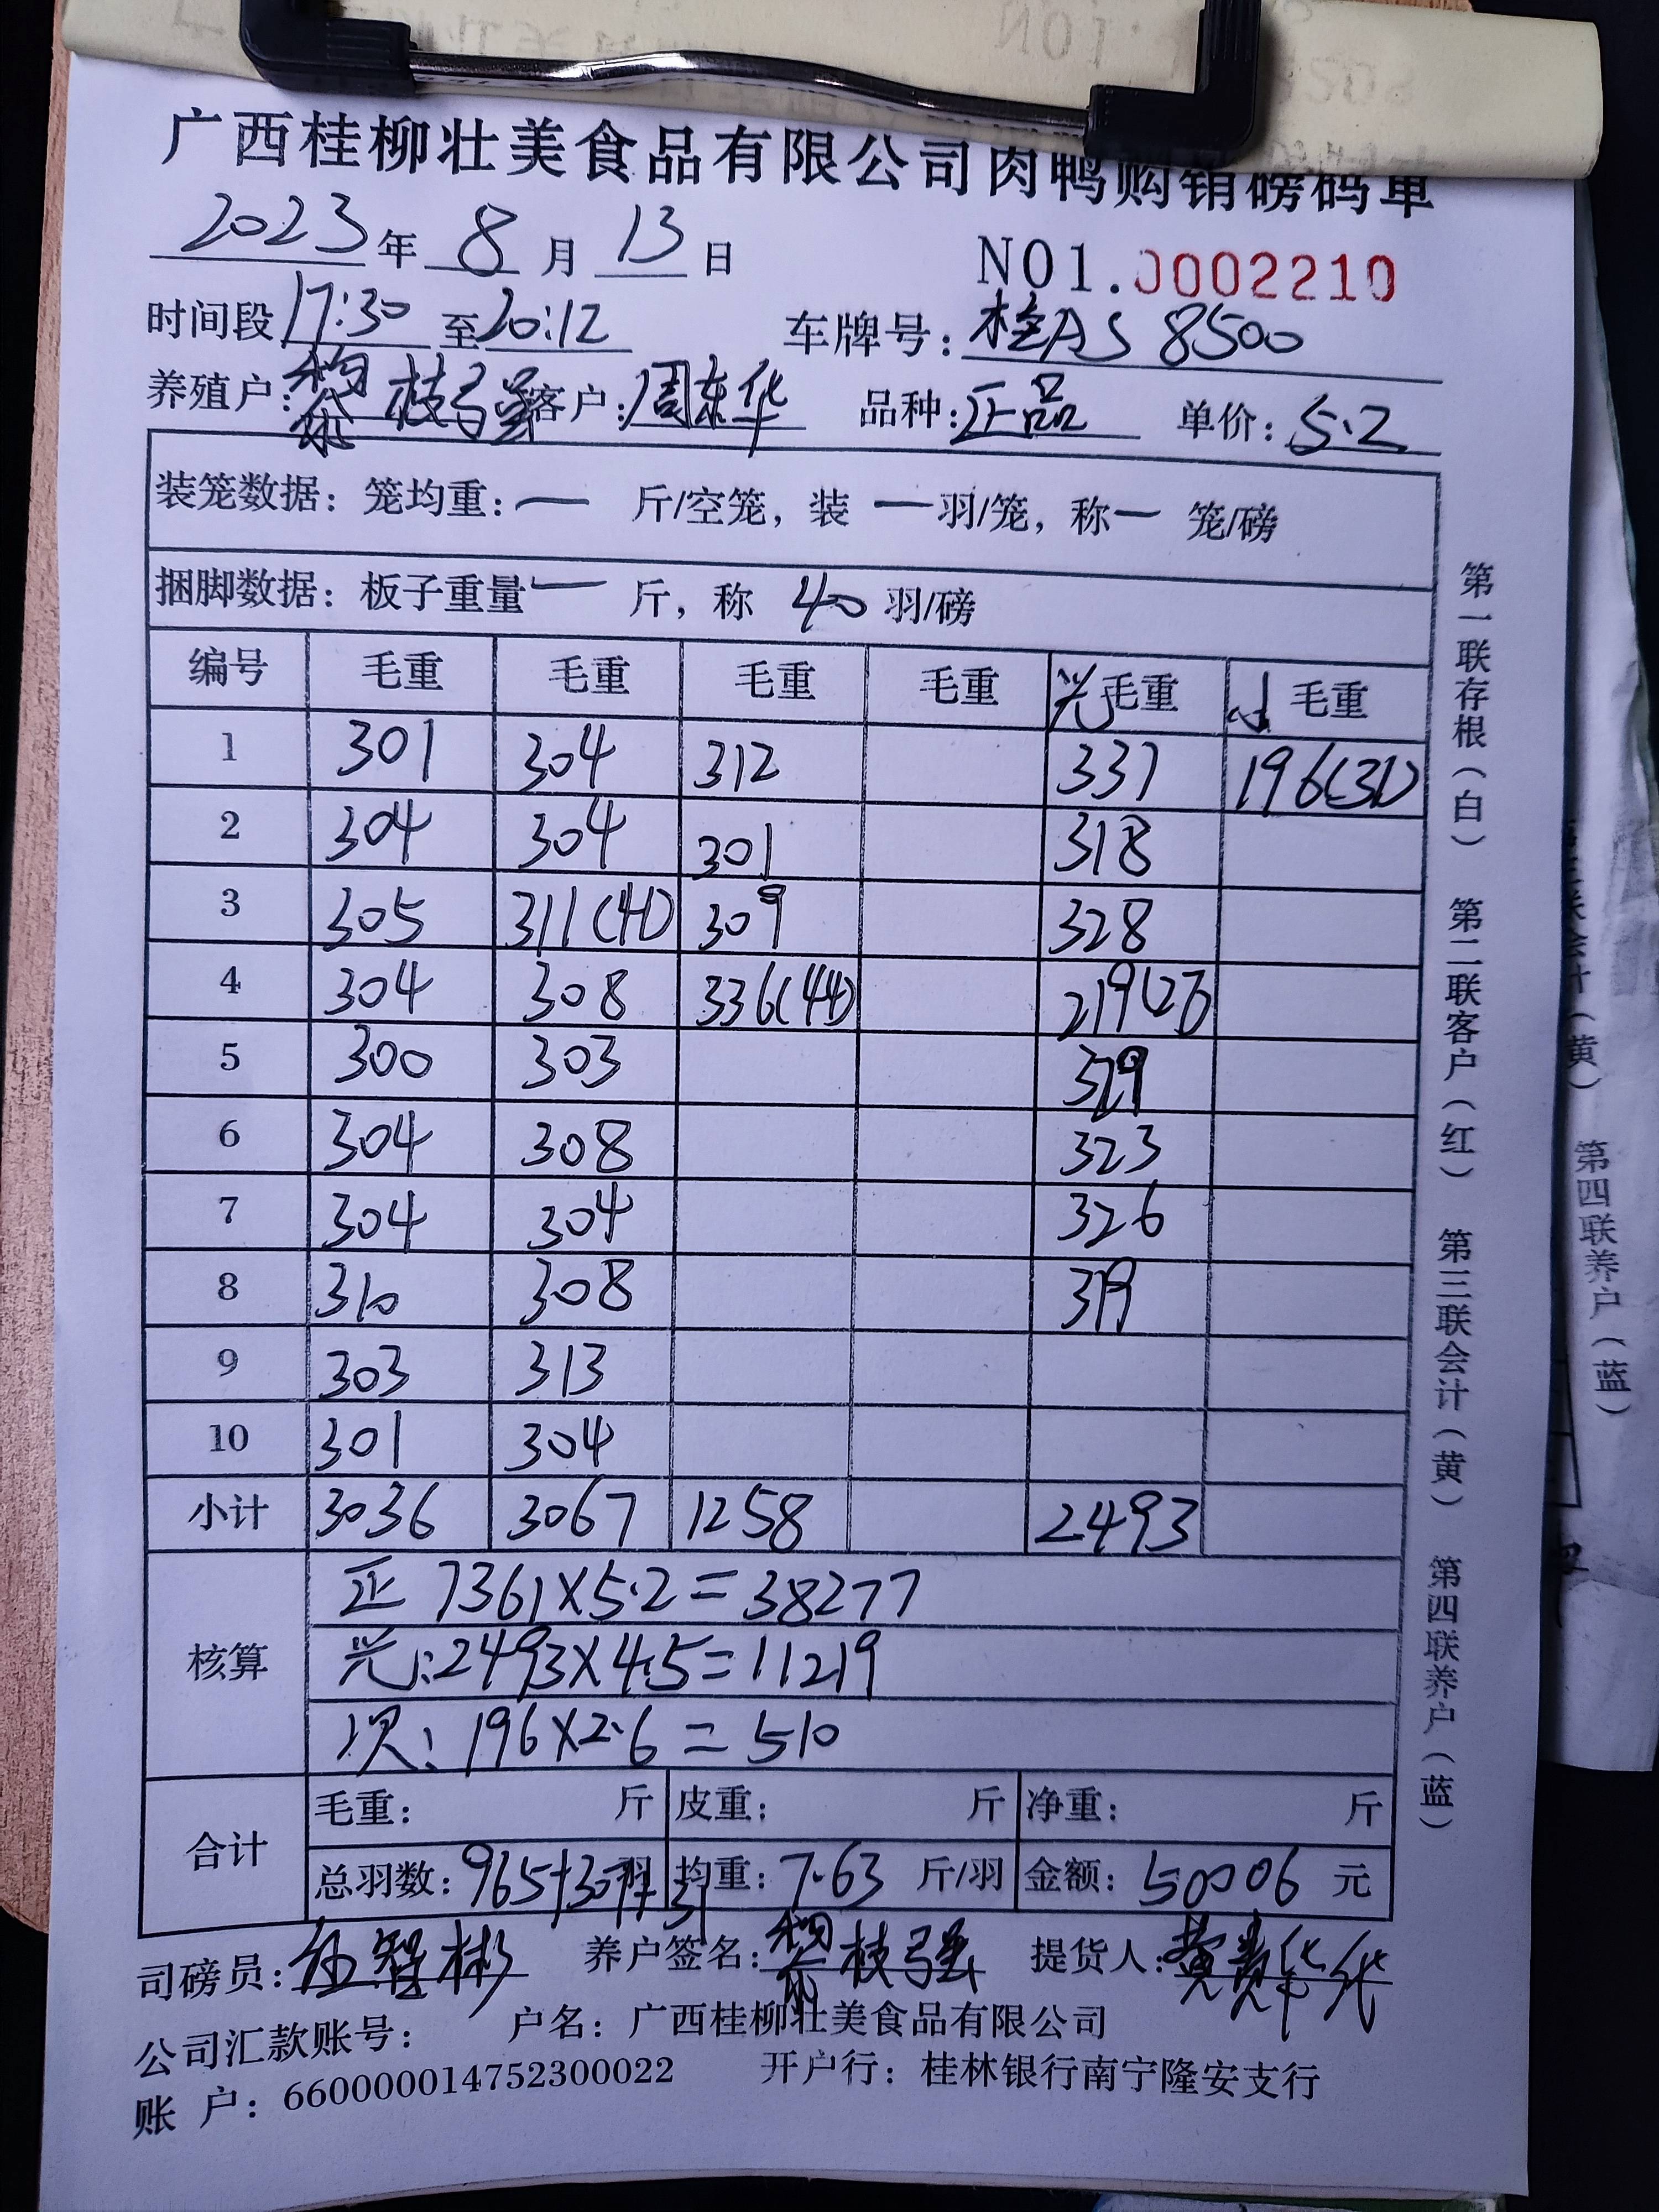 广西桂柳壮美食品有限公司肉鸭购销磅码单
2023年 8月 13日 NO1.0002210
时间段17:30至20:12 车牌号:桂AS8500
养殖户:黎枝强 客户:周东华 品种:正品 单价:5.2
装笼数据:笼均重:— 斤/空笼,装 — 羽/笼,称 — 笼/磅
捆脚数据:板子重量 — 斤,称 40 羽/磅
编号 毛重 毛重 毛重 毛重 光毛重 小毛重
1 301 304 312 337 196(31)
2 304 304 301 318
3 305 311(41) 309 328
4 304 308 336(44) 219(27)
5 300 303 
6 304 308 323
7 304 304 326
8 310 308 319
9 303 313
10 301 304
小计 3036 3067 1258 2493
核算
正 7361×5.2=38277
光:2493×4.5=11219
次:196×2.6=510
合计
毛重: 斤 皮重: 斤 净重: 斤
总羽数:965+307+31羽 均重:7.63 斤/羽 金额:50006 元
司磅员: 养户签名:黎枝强 提货人:
公司汇款账号: 户名:广西桂柳壮美食品有限公司
账 户:660000014752300022 开户行:桂林银行南宁隆安支行
第一联存根(白) 第二联客户(红) 第三联会计(黄) 第四联养户(蓝)
第四联养户(蓝)